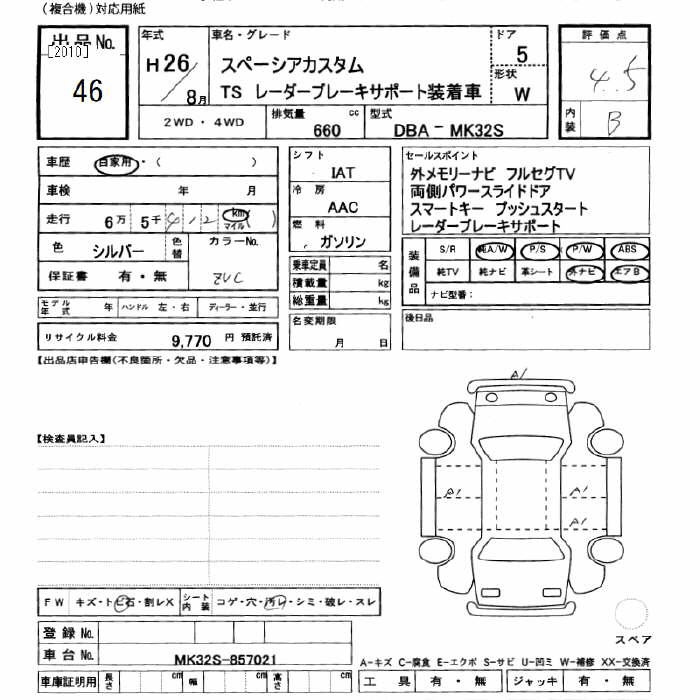 (複合機)対応用紙
出品No.
[2010]
46
年式
H26/8月
車名・グレード
スペーシアカスタム
TS レーダーブレーキサポート装着車
ドア
5
形状
W
2WD・4WD
排気量
660 cc
型式
DBA－MK32S
評価点
4.5
内装
B
車歴 自家用・( )
車検 年 月
走行 6万5千412 km マイル ( )
色 シルバー 色替
カラーNo.
ZVC
保証書 有・無
モデル年式 年 ハンドル 左・右 ディーラー・並行
リサイクル料金 9,770 円 預託済
シフト
IAT
冷房
AAC
燃料
ガソリン
乗車定員 名
積載量 kg
総重量 kg
名変期限
月 日
セールスポイント
外メモリーナビ フルセグTV
両側パワースライドドア
スマートキー プッシュスタート
レーダーブレーキサポート
装備品
S/R 純A/W P/S P/W ABS
純TV 純ナビ 革シート 外ナビ エアB
ナビ型番:
後日品
【出品店申告欄(不良箇所・欠品・注意事項等)】
【検査員記入】
A1
A1
A1
A1
スペア
FW キズ・トビ石・割レX シート内装 コゲ・穴・汚レ・シミ・破レ・スレ
登録No.
車台No. MK32S-857021
車庫証明用 長さ cm 幅 cm 高さ cm
A-キズ C-腐食 E-エクボ S-サビ U-凹ミ W-補修 XX-交換済
工具 有・無 ジャッキ 有・無